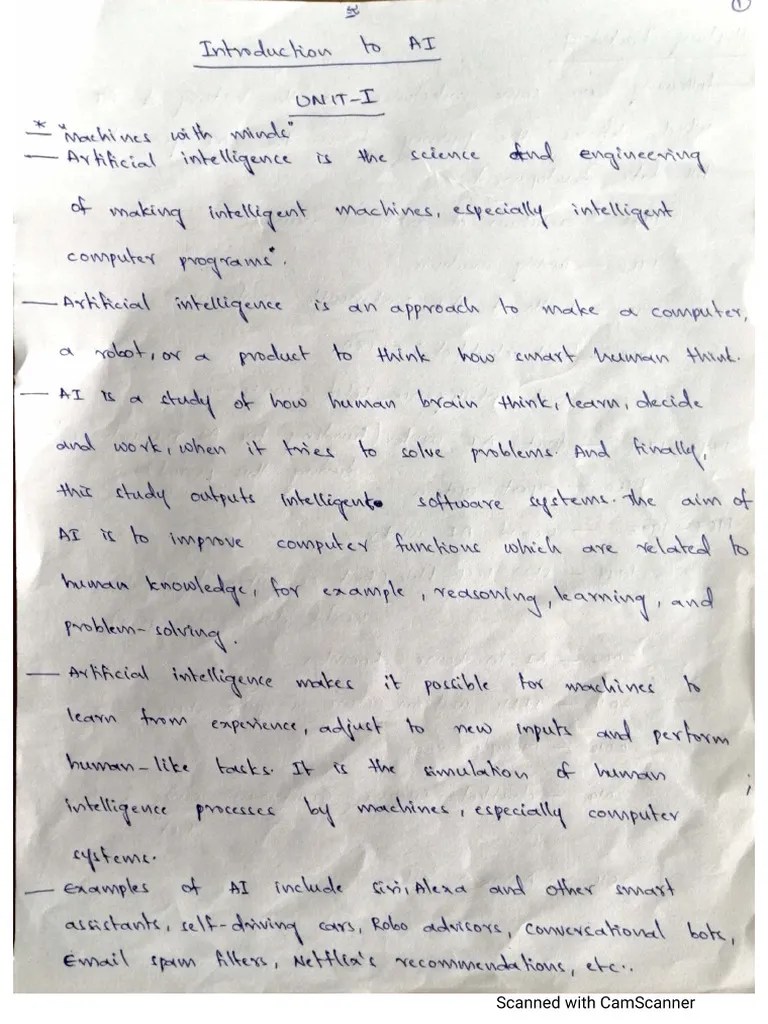 ①
Introduction to AI
UNIT-I
* "Machines with minds"
— Artificial intelligence is the science and engineering
of making intelligent machines, especially intelligent
computer programs".
— Artificial intelligence is an approach to make a computer,
a robot, or a product to think how smart human think.
— AI is a study of how human brain think, learn, decide
and work, when it tries to solve problems. And finally,
this study outputs intelligent software systems. The aim of
AI is to improve computer functions which are related to
human knowledge, for example, reasoning, learning, and
problem-solving.
— Artificial intelligence makes it possible for machines to
learn from experience, adjust to new inputs and perform
human-like tasks. It is the simulation of human
intelligence processes by machines, especially computer
systems.
— Examples of AI include Siri, Alexa and other smart
assistants, self-driving cars, Robo advisors, conversational bots,
Email spam filters, Netflix's recommendations, etc..
Scanned with CamScanner